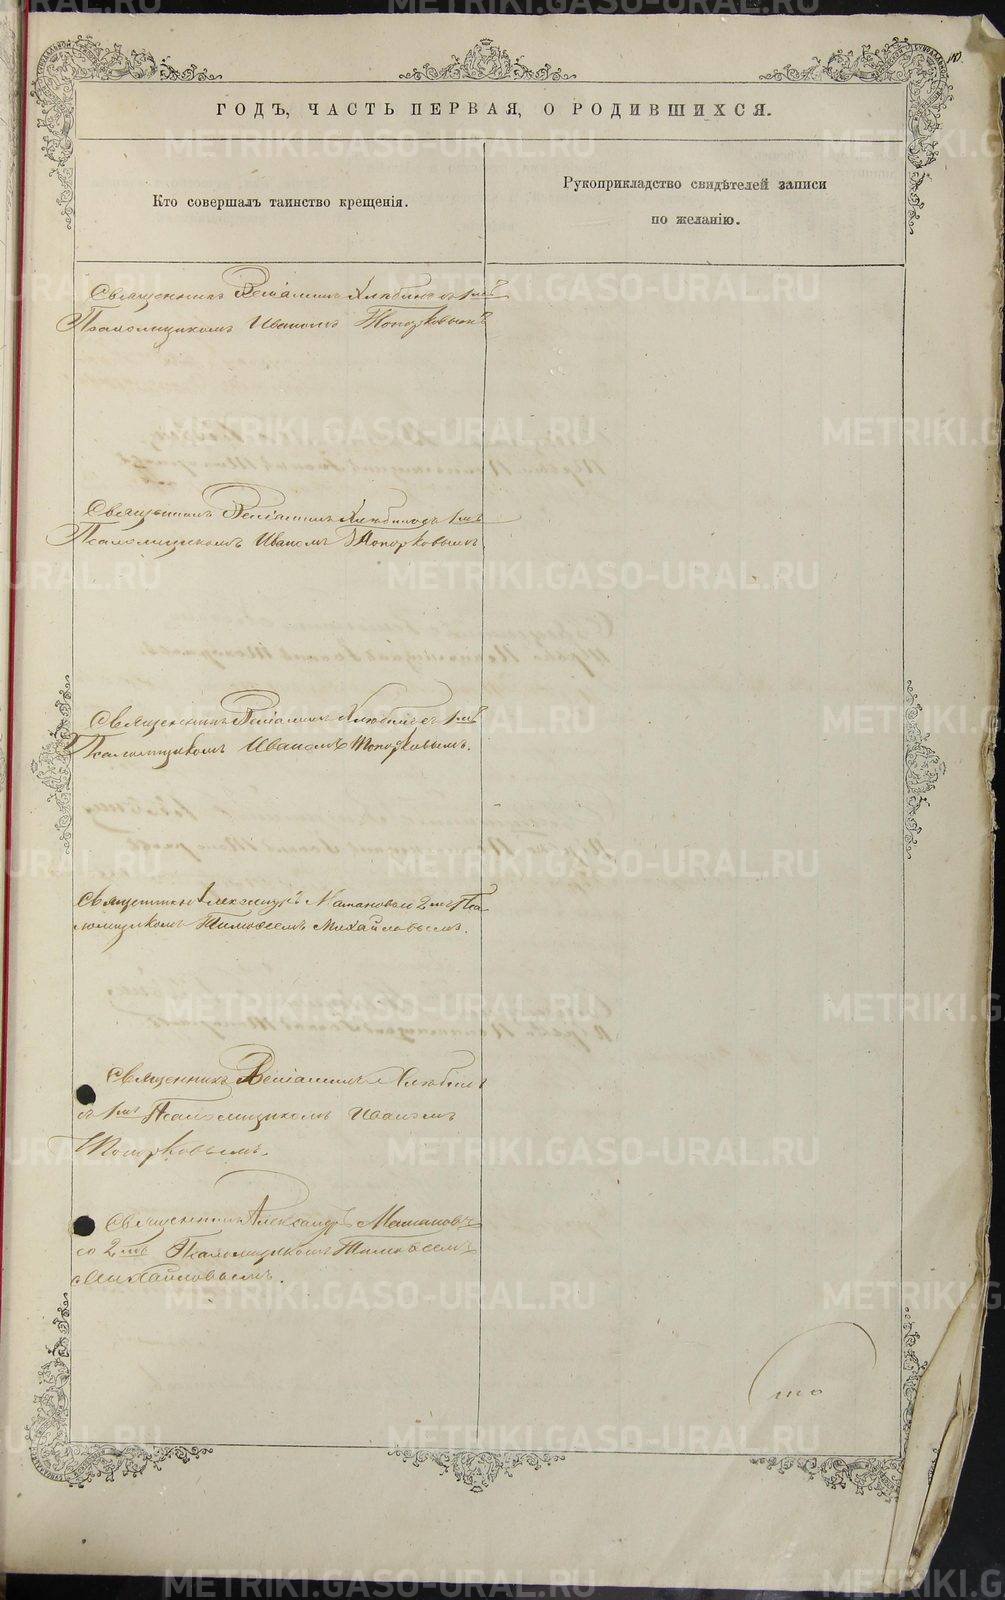 ГОДЪ, ЧАСТЬ ПЕРВАЯ, О РОДИВШИХСЯ.
Кто совершалъ таинство крещенія.
Рукоприкладство свидѣтелей записи
по желанію.
Священникъ Веніаминъ Хлюбинъ съ 1мъ
Псаломщикомъ Иваномъ Топорковымъ
Священникъ Веніаминъ съ 1мъ
Псаломщикомъ Иваномъ Топорковымъ
Священникъ Веніаминъ съ 1мъ
Псаломщикомъ Иваномъ Топорковымъ.
Священникъ Александръ со 2мъ Пса-
ломщикомъ Тимофеемъ Михайловымъ.
Священникъ Веніаминъ
съ 1мъ Псаломщикомъ Иваномъ
Топорковымъ.
Священникъ Александръ
со 2мъ Псаломщикомъ Тимофеемъ
Михайловымъ.
то
METRIKI.GASO-URAL.RU